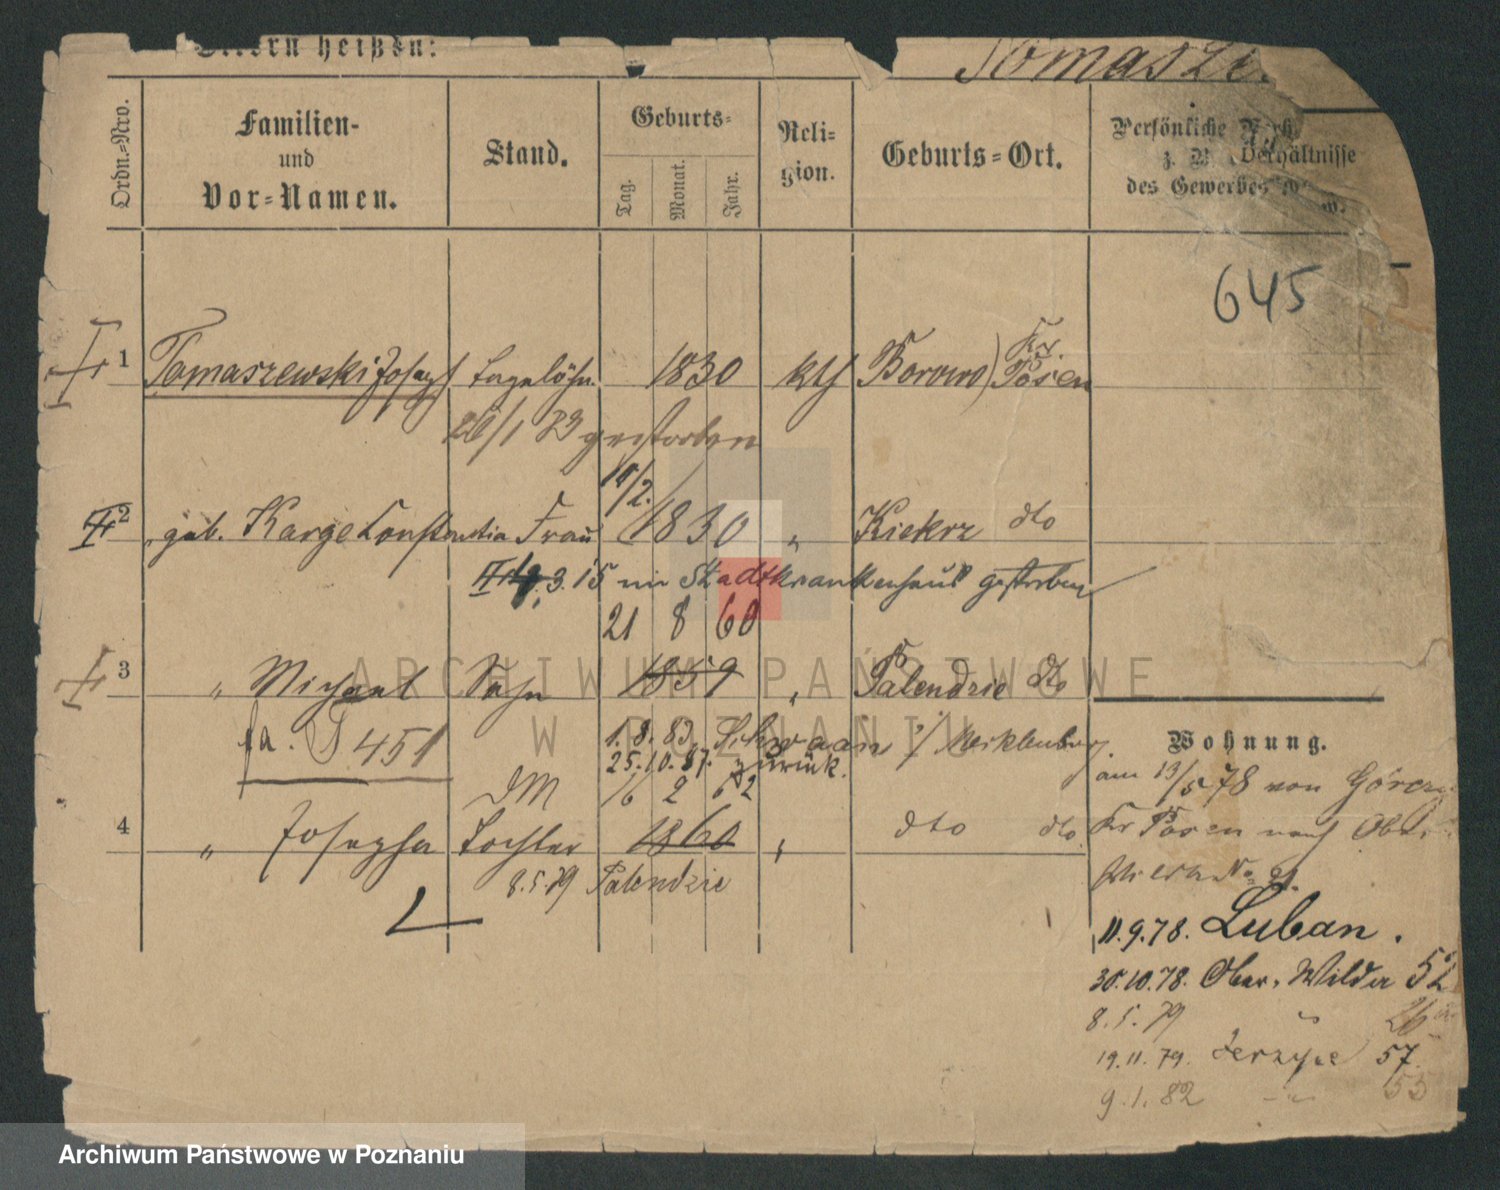 heißen:
Tomasze
Ordn.=Nro.
Familien-
und
Vor=Namen.
Stand.
Geburts=
Tag.
Monat.
Jahr.
Reli=
gion.
Geburts=Ort.
Persönliche
z. B. Verhältnisse
des Gewerbes
645
1 Tomaszewski Josef Tagelöhn. 1830 kth Borowo Kr. Posen
26/1 83 gestorben
10/2.
2 geb. Karge Constantia Frau 1830 " Kiekrz dto
3. 15 im Stadtkrankenhaus gestorben
21 8 60
3 " Michael Sohn 1859 " Palendzie dto
fa. T 451
1. 8. 83. Schwaan i/ Mecklenburg.
25. 10. 87. zurück.
16 2 62
4 " Josepha Tochter 1860 " dto dto
8. 5. 79 Palendzie
Wohnung.
am 13/5 78 von Górczy
Kr Posen nach Ober
Wilda
11. 9. 78. Luban.
30. 10. 78. Ober. Wilda 52
8. 5. 79 " 26
19. 11. 79. Jerzyce 57.
9. 1. 82 - " 55
ARCHIWUM PAŃSTWOWE
W POZNANIU
Archiwum Państwowe w Poznaniu